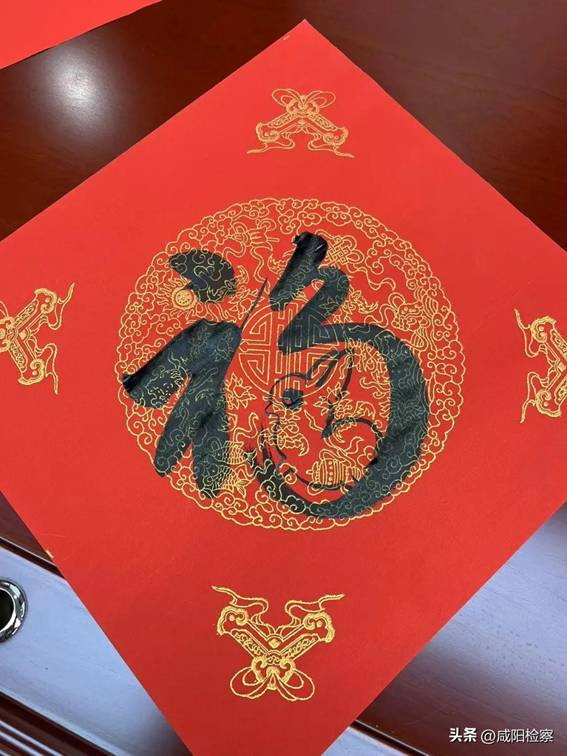 福
头条 @咸阳检察